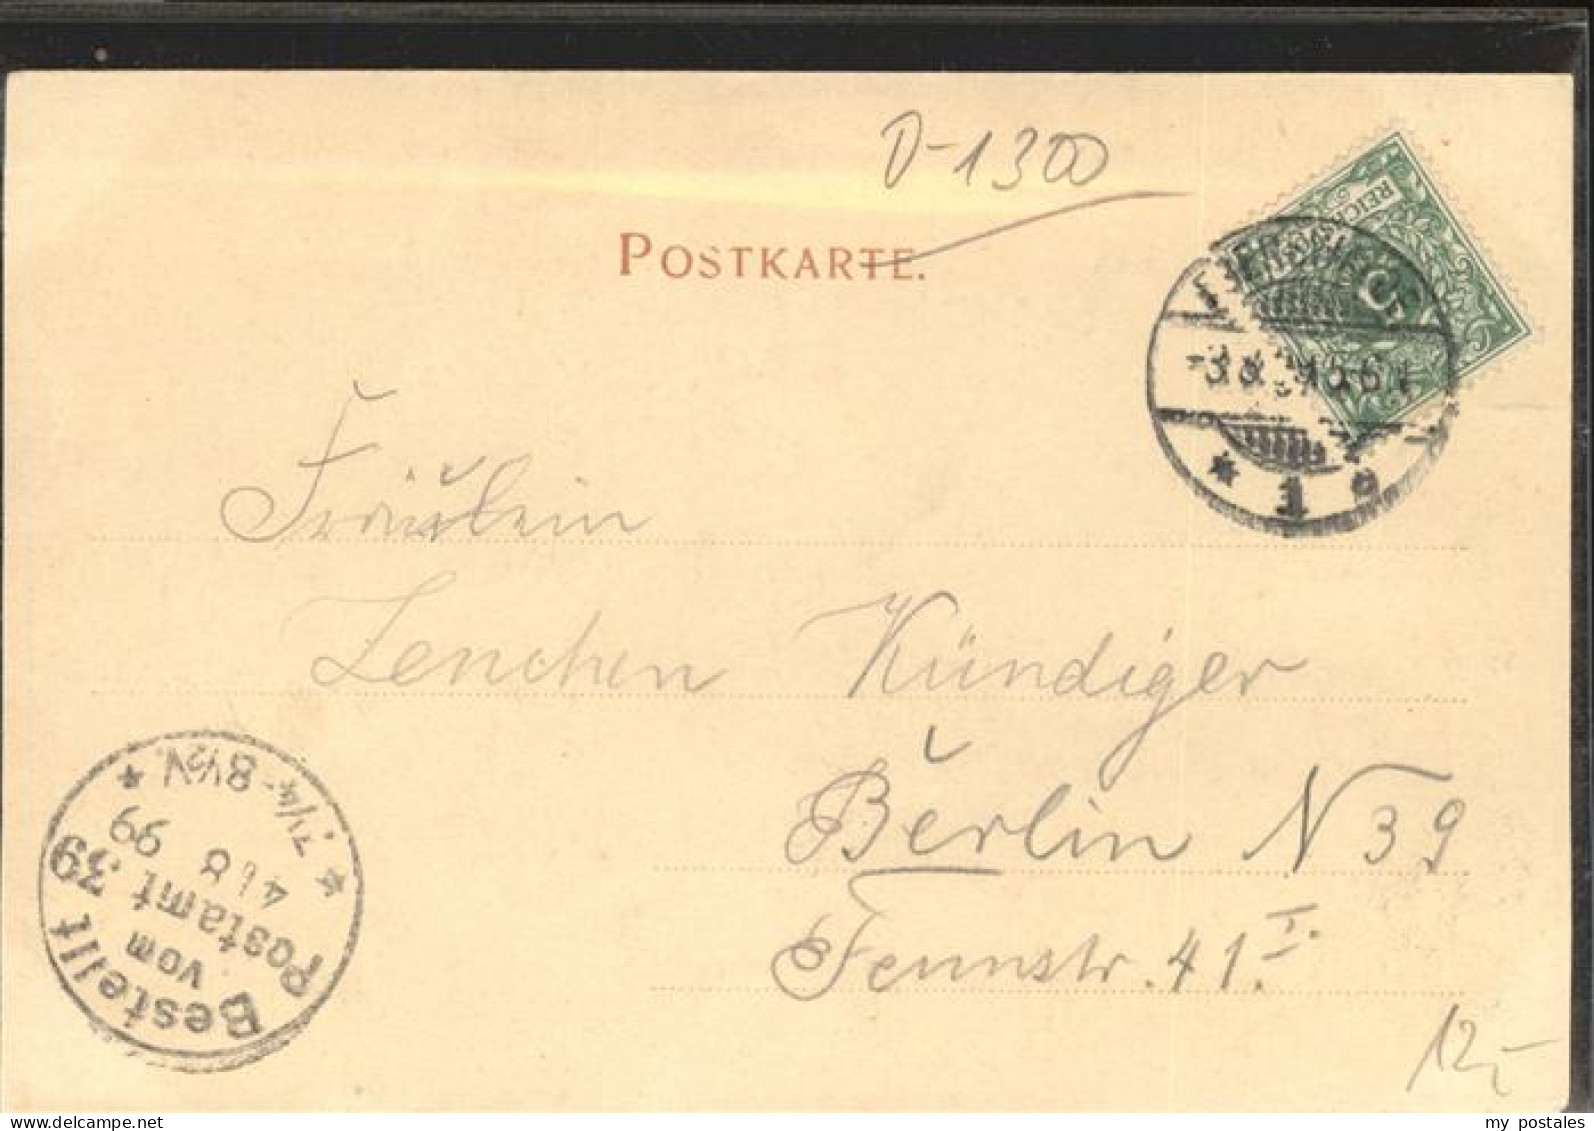 D-1300
POSTKARTE.
REICH
5
EBERSWALDE
3.8.99. 5-6N
* 1 c
Fräulein
Lenchen Kündiger
Berlin N 39
Fennstr. 41 I.
Bestellt
vom
Postamt 39
4/8 99
* 7¼-8½V. *
12,-
my postales